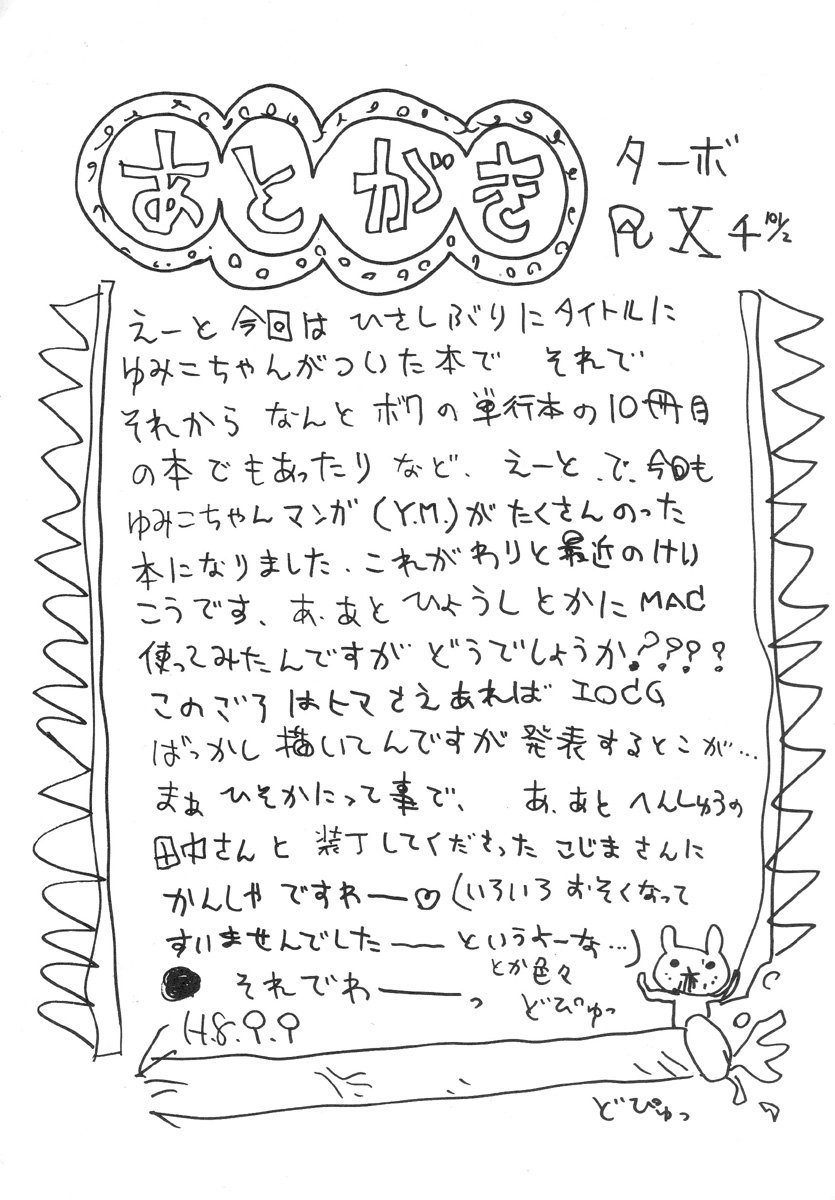 あとがき
ターボ
R X 4 101/2
えーと 今回は ひさしぶりに タイトルに
ゆみこちゃんがついた本で それで
それから なんと ボクの 単行本の10冊目
の本でもあったり など、えーと、で、今回も
ゆみこちゃんマンガ(Y.M.)がたくさんのった
本になりました、これがわりと最近のけい
こうです、あ、あと ひょうしとかにMAC
使ってみたんですが どうでしょうか????
このごろはヒマさえあれば
ばっかし描いてんですが発表するとこが…
まぁ ひそかにって事で、 あ、あと へんしゅうの
田中さんと 装丁してくださった こじまさんに
かんしゃ ですわー♡(いろいろ おそくなって
すいませんでしたー というよーな…)
とか色々
● それでわーっ
どぴゅっ
H.8.9.9
どぴゅっ